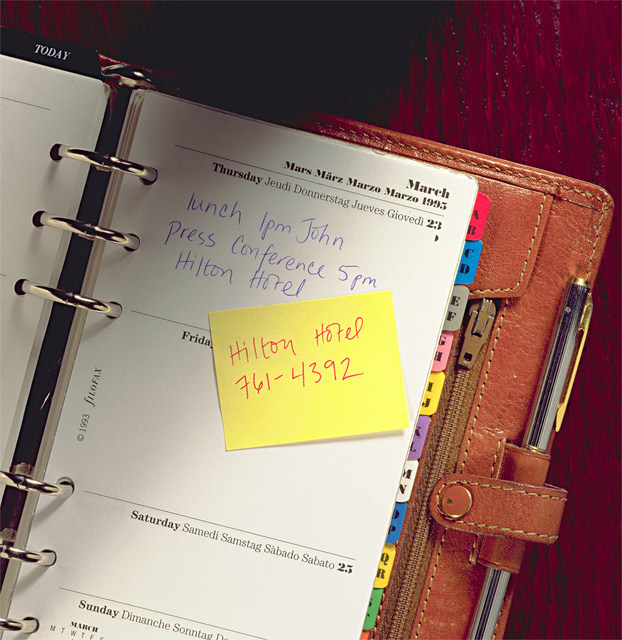 TODAY
March
Mars März Marzo Marzo 1995
Thursday Jeudi Donnerstag Jueves Giovedì 23
lunch 1pm John
press conference 5pm
Hilton Hotel
Friday
Hilton Hotel
761-4392
© 1993 fILOFAX
Saturday Samedi Samstag Sàbado Sabato 25
Sunday Dimanche Sonntag
MARCH
M T W T F S
A
B
C
D
E
F
G
H
I
J
K
L
M
N
O
P
Q
R